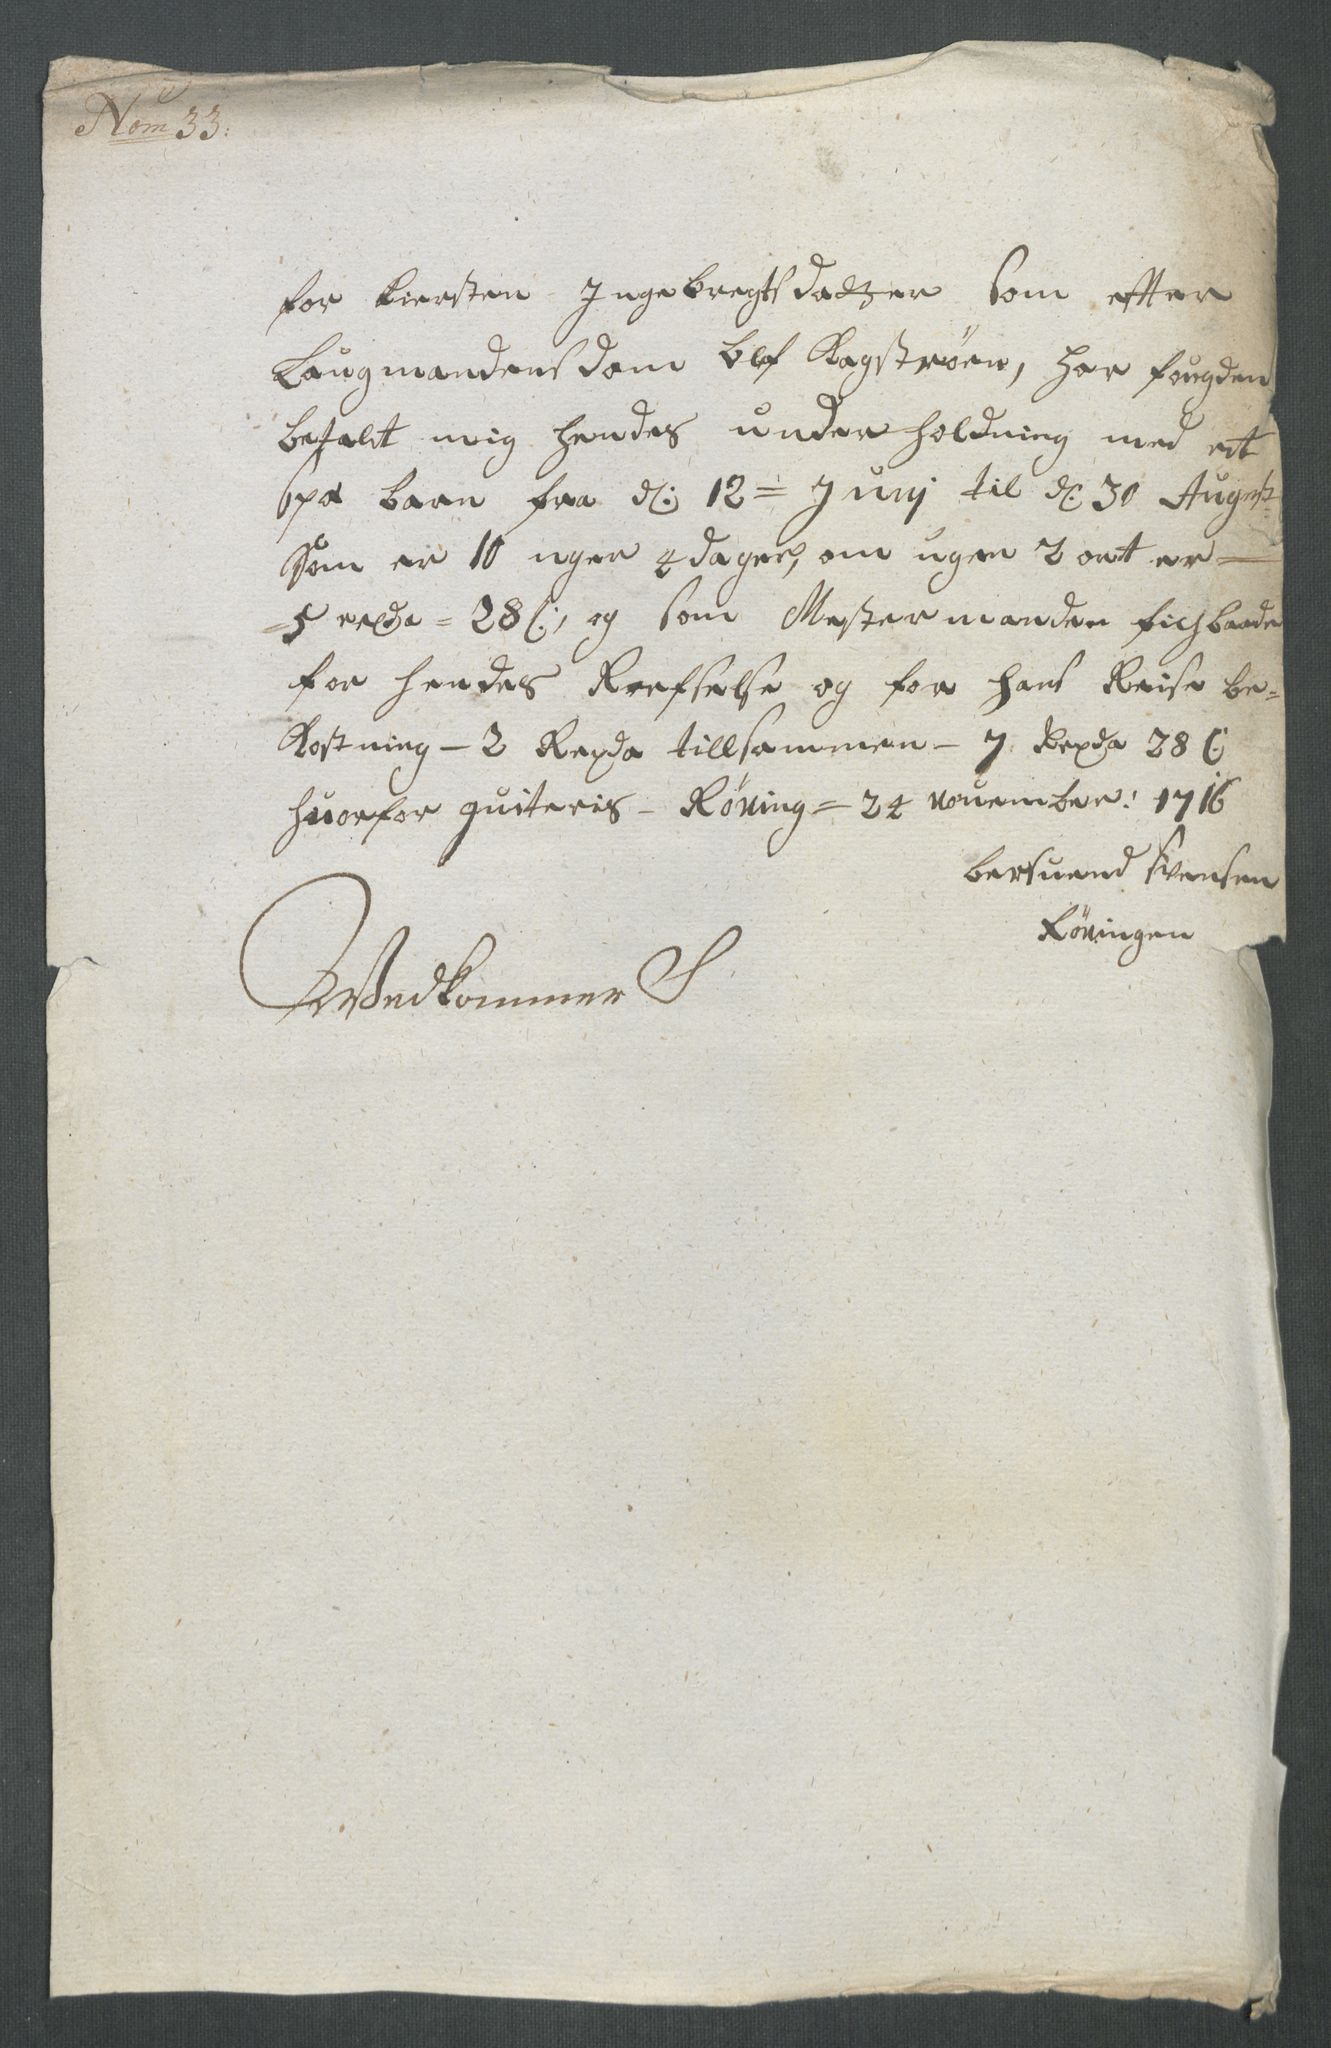 Nom 33:
for Kiersten Ingebregtsdatter som efter
Laugmandens dom blef Kagstrøen, har fougden
betalt mig hendes underholdning med et
spæ barn fra d: 12 = Junj til d: 30 August
som er 10 uger 4 dager, om ugen 2 ort er —
= 5 rexda = 28 s:, og som Mestermanden fich baade
for hendes Reefselse og for hans Reise be=
kostning — 2 Rexda tillsammen — 7 Rexda 28 s:
huorfor quiteris — Røning = 24 nouember: 1716
bersuend Svensen
Røningen
Wedkommer S